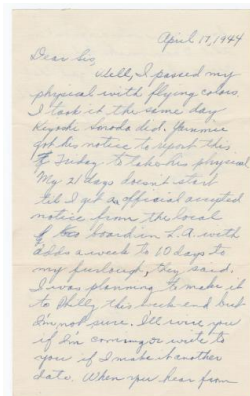 April 17, 1944
Dear Sis,
Well, I passed my
physical with flying colors.
I took it the same day
Kiyoshi Sonoda did. Yammie
got his notice to report this
Friday to take his physical
My 21 days doesn't start
til I get an official accepted
notice from the local
board in L.A. with
adds a week to 10 days to
my furlough, they said.
I was planning to make it
to Philly this week end but
I'm not sure. I'll wire you
if I'm coming or write to
you if I make it another
date. When you hear from